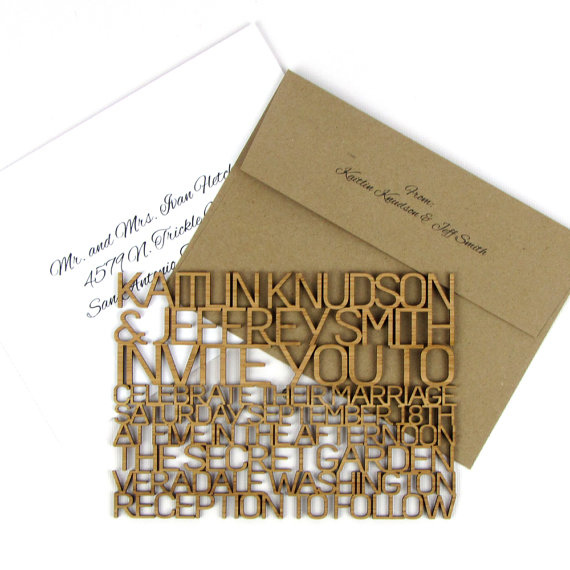 Mr. and Mrs. Ivan Fletch
4579 N. Trickle
San Antonio
From:
Kaitlin Knudson & Jeff Smith
KAITLIN KNUDSON
& JEFFREY SMITH
INVITE YOU TO
CELEBRATE THEIR MARRIAGE
SATURDAY SEPTEMBER 18TH
AT FIVE IN THE AFTERNOON
THE SECRET GARDEN
VERADALE WASHINGTON
RECEPTION TO FOLLOW